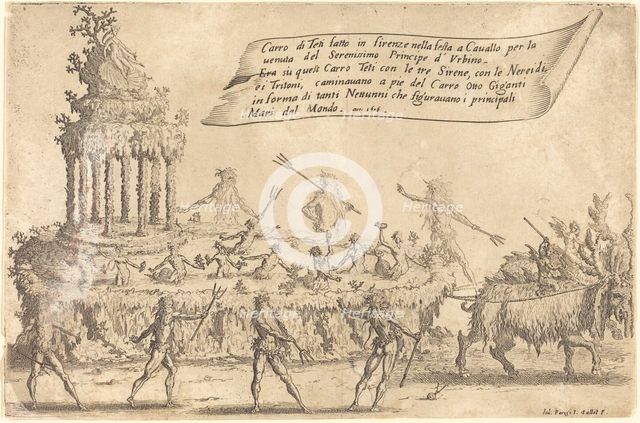 Carro di Teti fatto in firenze nella festa a Cauallo per la
uenuta del Serenissimo Principe d'Vrbino.
Era su quest Carro Teti con le tre Sirene, con le Nereidi
et Tritoni, caminauano a pie del Carro Otto Giganti
in forma di tanti Nettunni che figurauano i principali
Mari del Mondo.
Heritage Heritage
C
Heritage Heritage
Iul. Parigi I. Callot F.